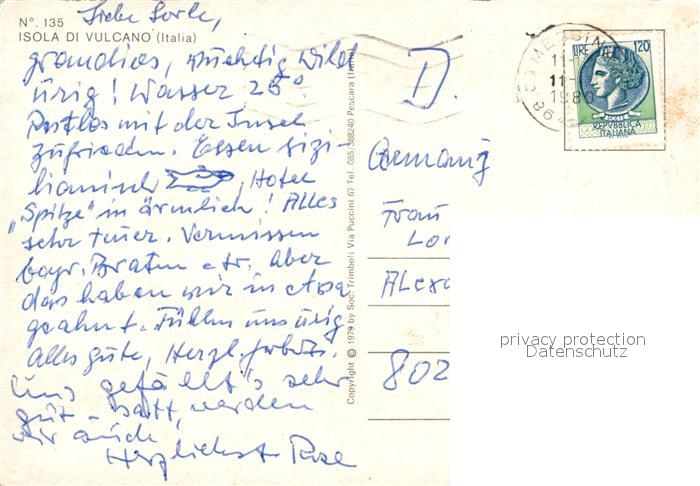 Nº. 135
ISOLA DI VULCANO (Italia)
Liebe
grandios, wuchtig wild
urig! Wasser 25°
Restlos mit der Insel
zufrieden. Essen sizi-
lianisch, Hotel
„Spitze" in ärmlich! Alles
sehr teuer. Vermissen
bayr. Braten etc. Aber
das haben wir in etwa
geahnt. Fühlen uns urig
Alles gute, Herzl.
Uns gefällt's sehr
gut - satt werden
wir auch,
Herzlichst Rose
Copyright © 1979 by Soc. Trimboli Via Puccini 67 Tel. 085/388240 Pescara (Ita
D.
Germany
Frau
Lor
Alexa
802
MESSINA
11-
11-
1980
98
LIRE 120
REPVBBLICA
ITALIANA
privacy protection
Datenschutz